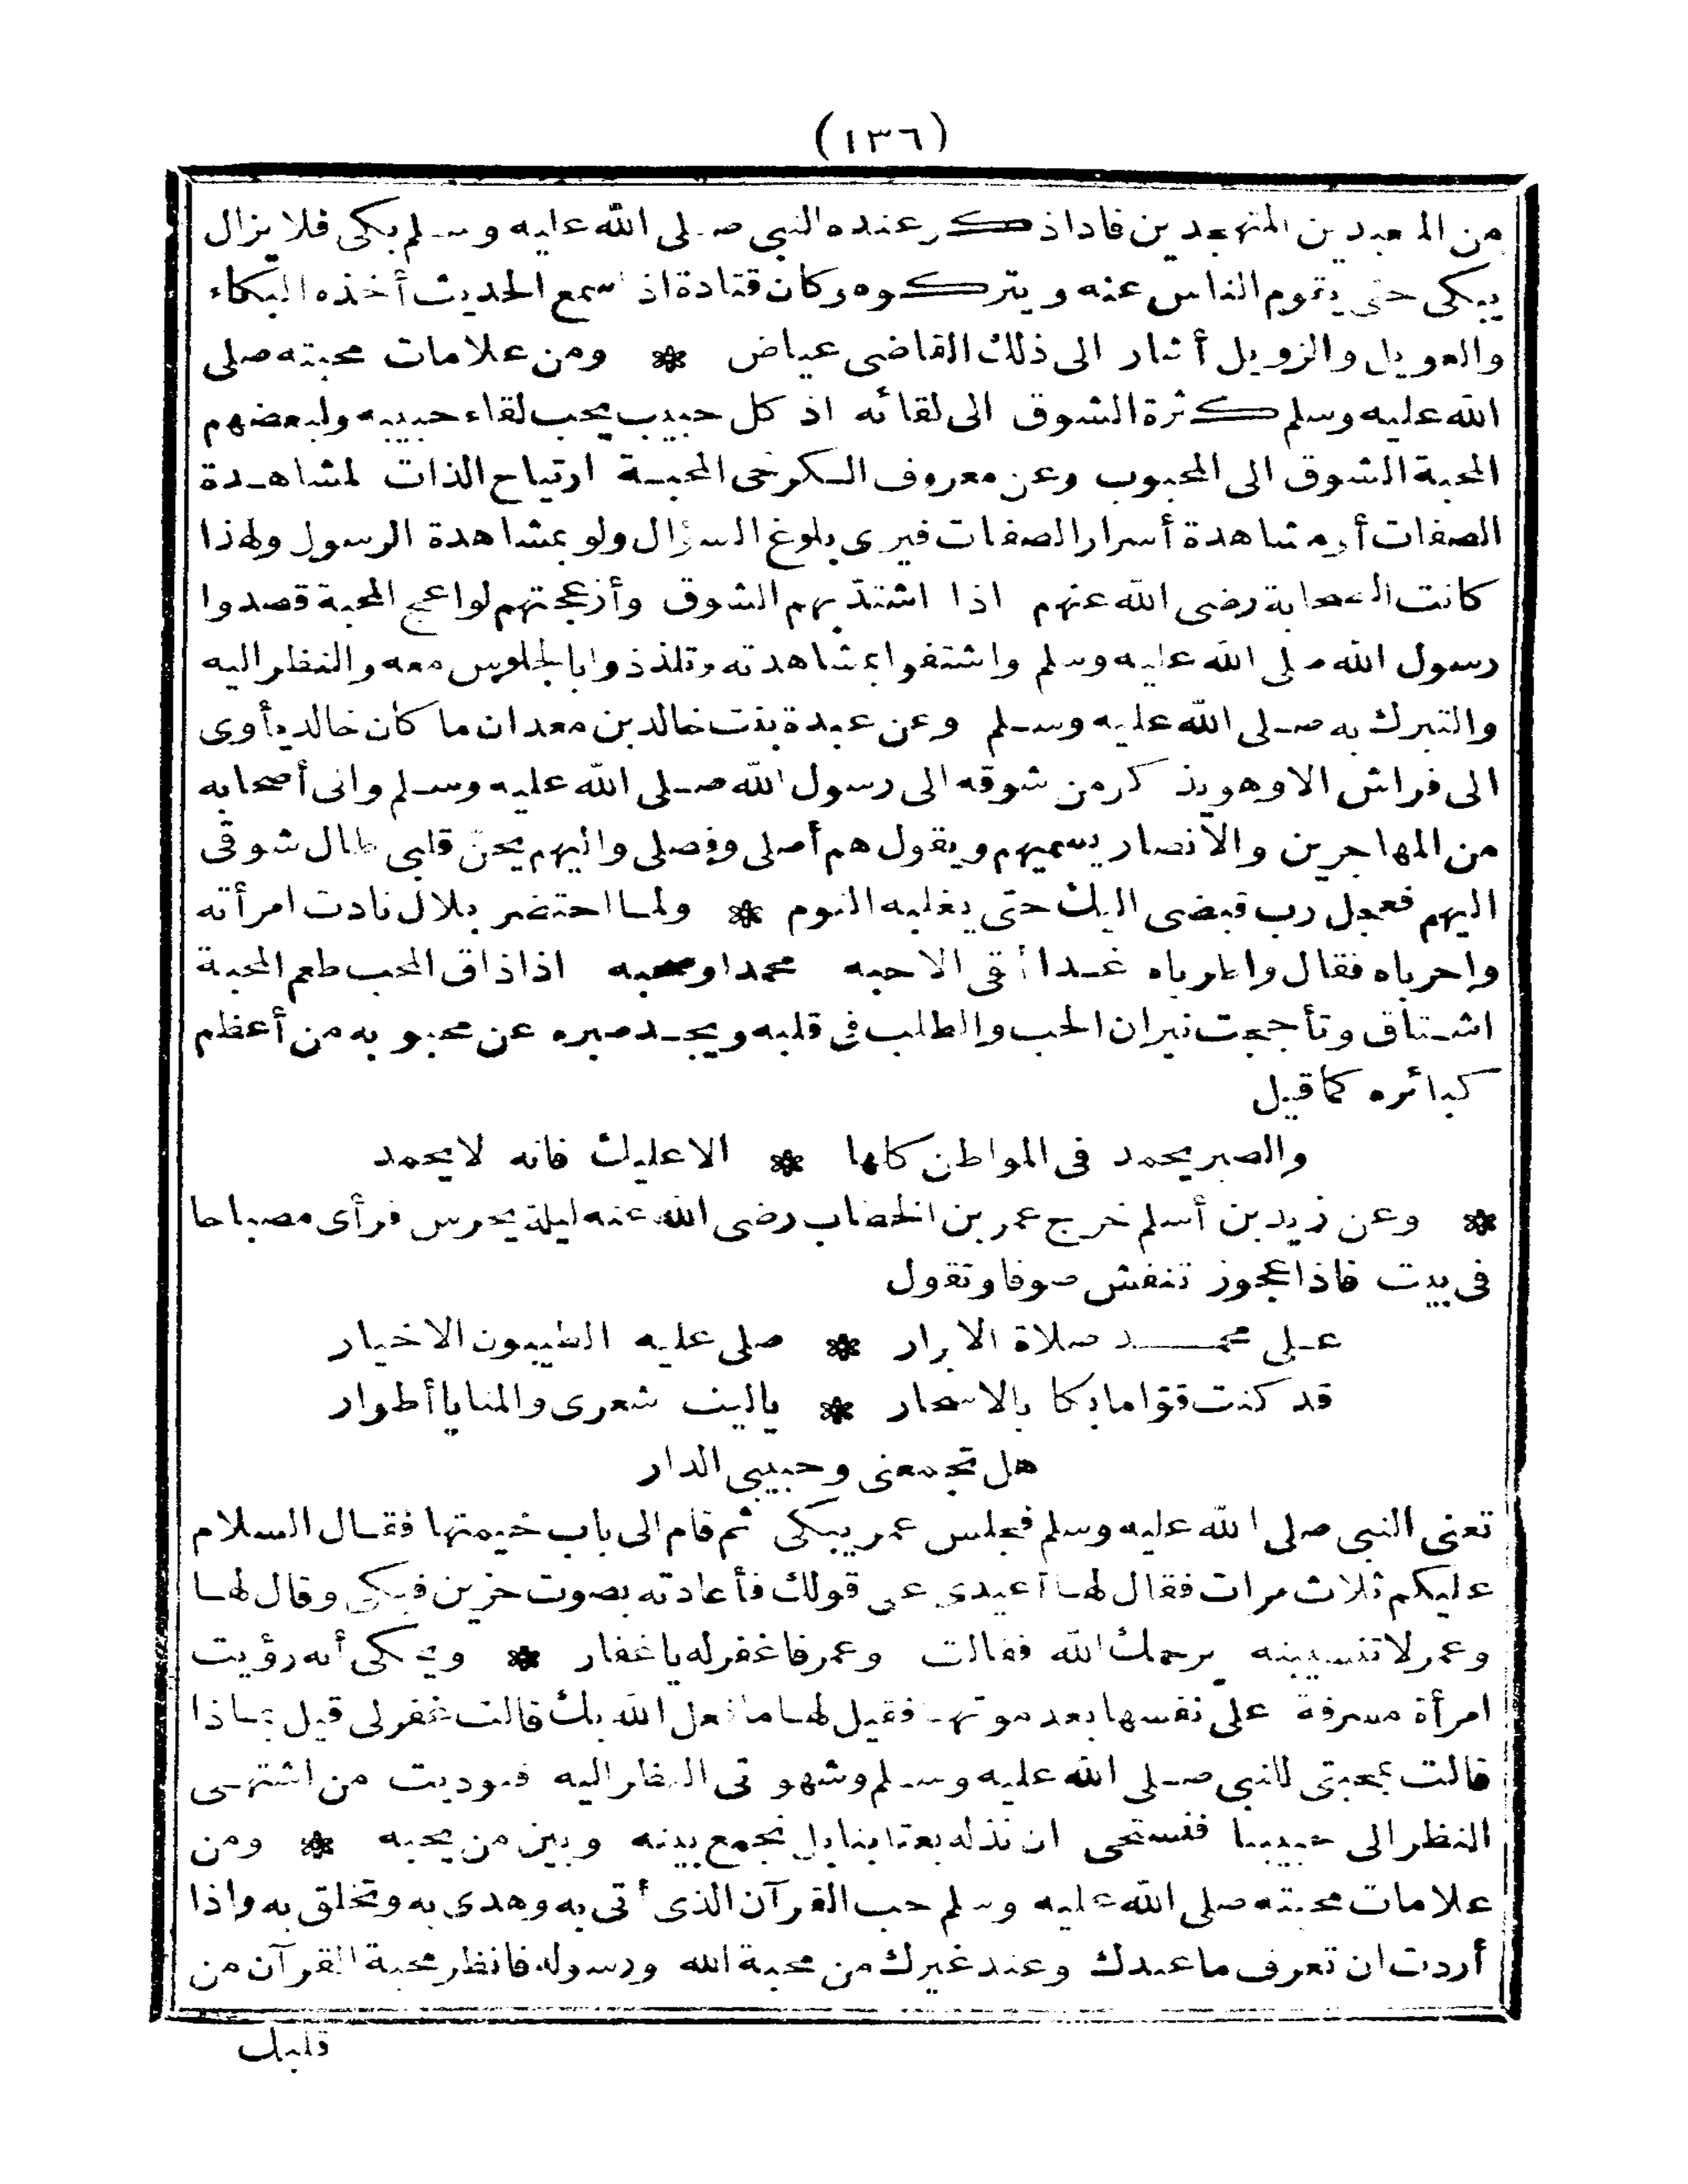 (١٣٦)
من المتعبدين المتهجدين فاذا ذكر عنده النبي صلى الله عليه وسلم بكى فلا يزال
يبكى حتى يقوم الناس عنه ويتركوه وكان قتادة اذا سمع الحديث أخذه البكاء
والعويل والزويل أشار الى ذلك القاضى عياض * ومن علامات محبته صلى
الله عليه وسلم كثرة الشوق الى لقائه اذ كل حبيب يحب لقاء حبيبه ولبعضهم
المحبة الشوق الى المحبوب وعن معروف الكرخى المحبة ارتياح الذات لمشاهدة
الصفات أو مشاهدة أسرار الصفات فيرى بلوغ السؤال ولو بمشاهدة الرسول ولهذا
كانت الصحابة رضى الله عنهم اذا اشتدّ بهم الشوق وأزعجتهم لواعج المحبة قصدوا
رسول الله صلى الله عليه وسلم واشتفوا بمشاهدته وتلذذوا بالجلوس معه والنظر اليه
والتبرك به صلى الله عليه وسلم وعن عبدة بنت خالد بن معدان ما كان خالد يأوى
الى فراش الا وهو يذكر من شوقه الى رسول الله صلى الله عليه وسلم والى أصحابه
من المهاجرين والأنصار يسميهم ويقول هم أصلى وفصلى واليهم يحنّ قلبى طال شوقى
اليهم فعجل رب قبضى اليك حتى يغلبه النوم * ولما احتضر بلال نادت امرأته
واحرباه فقال واطرباه غدا ألقى الاحبه محمدا وصحبه اذا ذاق المحب طعم المحبة
اشتاق وتأججت نيران الحب والطلب فى قلبه ويجد صبره عن محبوبه من أعظم
كبائره كما قيل
والصبر يحمد فى المواطن كلها * الا عليك فانه لا يحمد
* وعن زيد بن أسلم خرج عمر بن الخطاب رضى الله عنه ليلة يحرس فرأى مصباحا
فى بيت فاذا عجوز تنفش صوفا وتقول
على محمد صلاة الابرار * صلى عليه الطيبون الاخيار
قد كنت قوّاما بكا بالاسحار * ياليت شعرى والمنايا أطوار
هل تجمعنى وحبيبى الدار
تعنى النبى صلى الله عليه وسلم فجلس عمر يبكى ثم قام الى باب خيمتها فقال السلام
عليكم ثلاث مرات فقال لها أعيدى على قولك فأعادته بصوت حزين فبكى وقال لها
وعمر لا تنسينه يرحمك الله فقالت وعمر فاغفر له يا غفار * ويحكى أنه رؤيت
امرأة مسرفة على نفسها بعد موتها فقيل لها ما فعل الله بك قالت غفر لى قيل بماذا
قالت بمحبتى للنبى صلى الله عليه وسلم وشهوتى النظر اليه فنوديت من اشتهى
النظر الى حبيبنا فنستحى ان نذله بعتابنا بل نجمع بينه وبين من يحبه * ومن
علامات محبته صلى الله عليه وسلم حب القرآن الذى أتى به وهدى به وتخلق به واذا
أردت ان تعرف ما عندك وعند غيرك من محبة الله ورسوله فانظر محبة القرآن من
قلبك